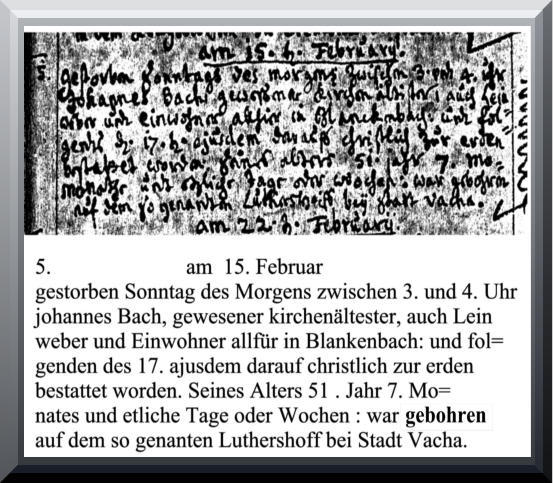 am 15. h. February.
5.
gestorben Sonntags des morgens zwischen 3. und 4. uhr
Johannes Bach gewesener auch Lein
weber und einwohner in Blanckenbach: und fol=
17. h. ejusdem darauf christlich zur erden
bestattet worden seines alters 51. jahr 7. mo=
und etliche Tage oder wochen: war gebohren
auf dem so genanten Luthershoff bey statt Vacha.
am 22. h. February.
5. am 15. Februar
gestorben Sonntag des Morgens zwischen 3. und 4. Uhr
johannes Bach, gewesener kirchenältester, auch Lein
weber und Einwohner allfür in Blankenbach: und fol=
genden des 17. ajusdem darauf christlich zur erden
bestattet worden. Seines Alters 51 . Jahr 7. Mo=
nates und etliche Tage oder Wochen : war gebohren
auf dem so genanten Luthershoff bei Stadt Vacha.